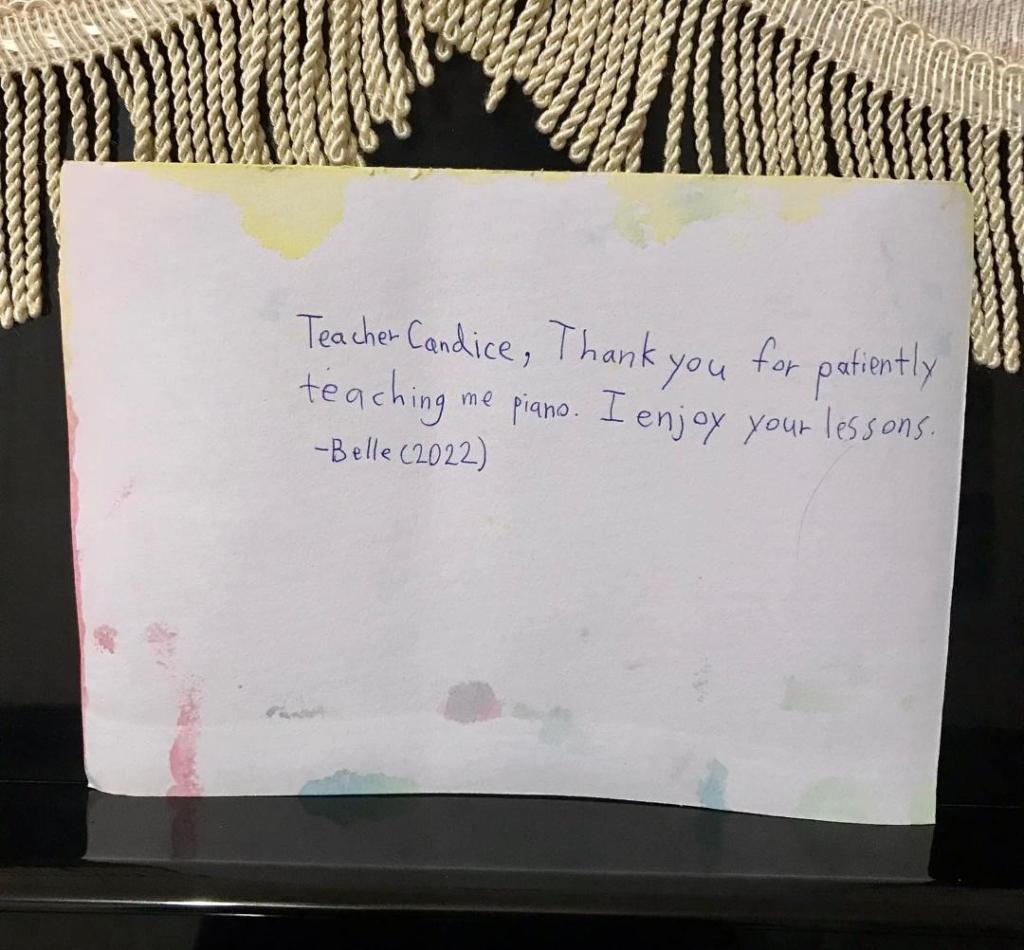 Teacher Candice, Thank you for patiently
teaching me piano. I enjoy your lessons.
-Belle (2022)